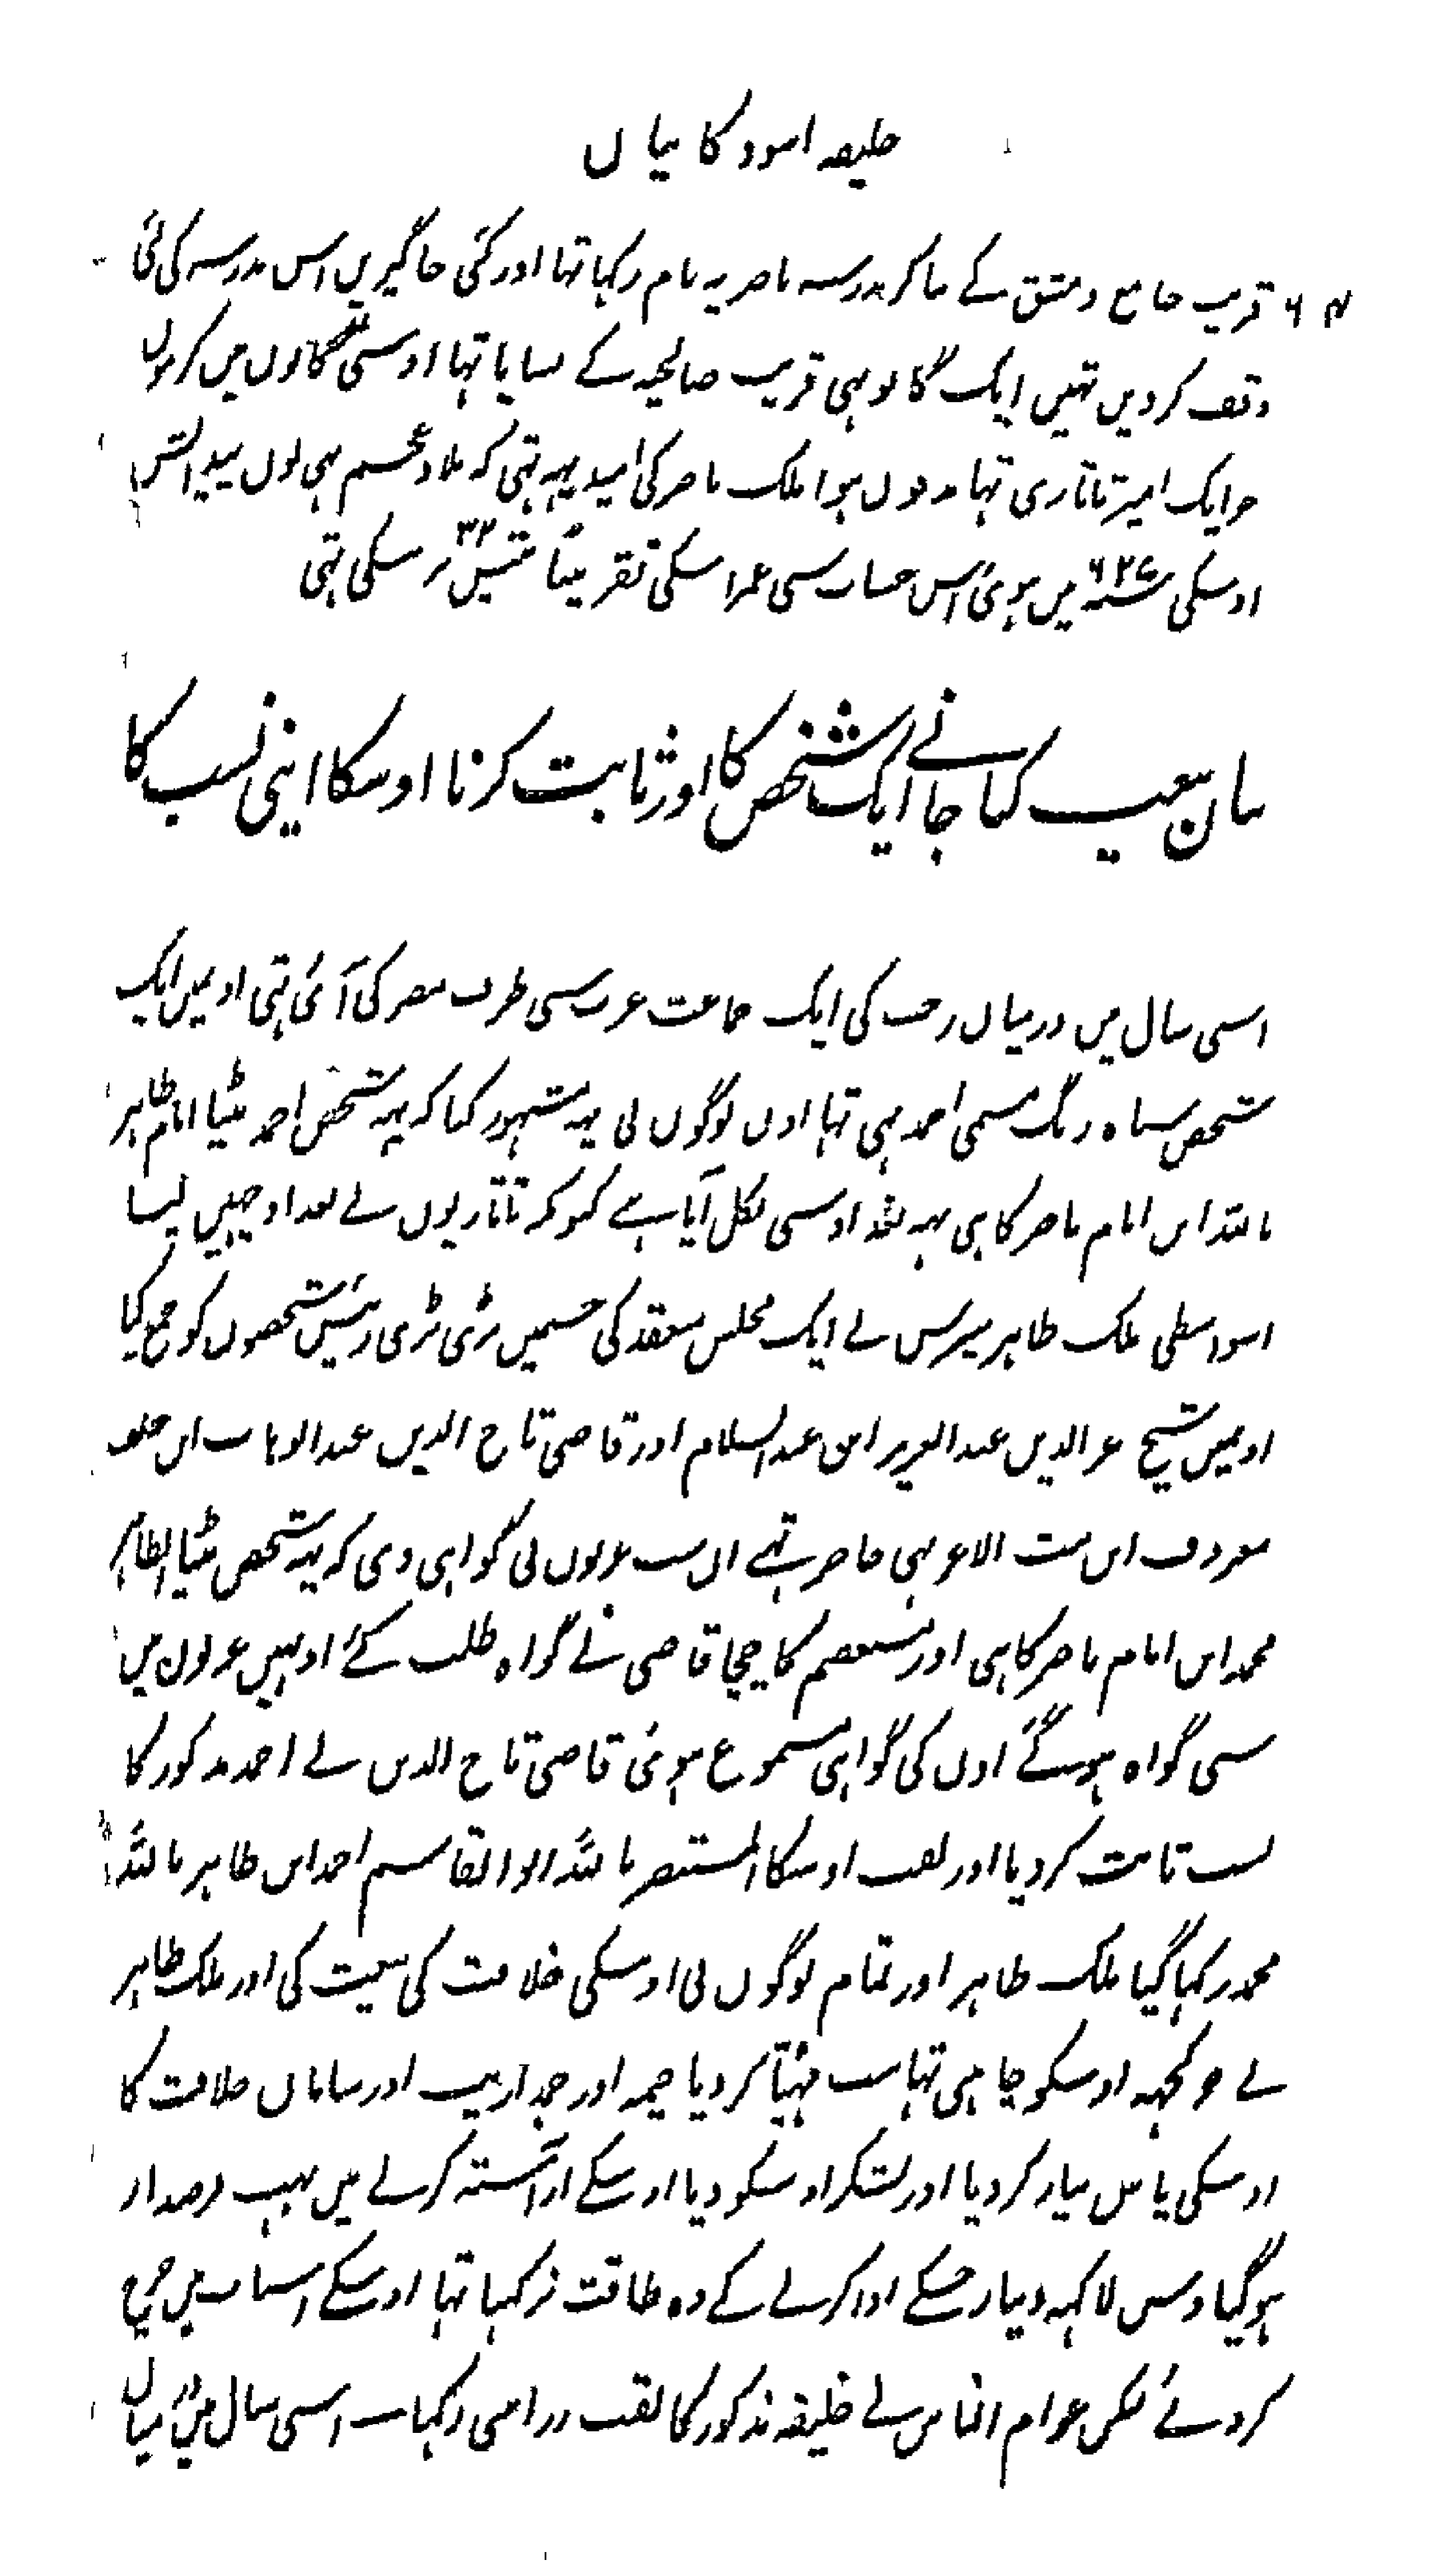 خلیفہ اسود کا بیان
۶۴ قریب جامع دمشق کے بنا کر مدرسہ ناصریہ نام رکہا تہا اور کئی جاگیریں اس مدرسہ کی لئی
وقف کر دیں تہیں ایک گانو بہی قریب صالحیہ کے بسایا تہا اوسی گانوں میں کرمون
جو ایک امیر تاتاری تہا مدفون ہوا ملک ناصر کی امید یہہ تہی کہ بلاد عجم ہی لوں پیدایش
اوسکی ۶۲۷ سنہ میں ہوئی اس حساب سی عمر اسکی تقریباً بتیس ۳۲ برسکی تہی
بیان بیعت کیا جانے ایک شخص کا اور ثابت کرنا اوسکا اپنی نسب کا
اسی سال میں درمیان رجب کی ایک جماعت عرب سی طرف مصر کی آئی تہی اونمیں ایک
شخص سیاہ رنگ مسمی احمد بہی تہا اون لوگوں نی یہہ مشہور کیا کہ یہہ شخص احمد بیٹا امام ظاہر
باللہ ابن امام ناصر کا ہی یہہ بغداد سی نکل آیا ہے کیونکہ تاتاریوں نے بغداد چہین لیا
اسواسطی ملک ظاہر بیبرس نے ایک مجلس منعقد کی جسمیں بڑی بڑی رئیس شخصوں کو جمع کیا
اونمیں شیخ عز الدین عبد العزیز ابن عبد السلام اور قاضی تاج الدین عبد الوہاب ابن خلف
معروف ابن بنت الاعز بہی حاضر تہے ان سب عربوں نی گواہی دی کہ یہہ شخص بیٹا الظاہر
محمد ابن امام ناصر کا ہی اور مستعصم کا چچا قاضی نے گواہ طلب کئے اونہیں عربون میں
سی گواہ ہو گئے اون کی گواہی مسموع ہوئی قاضی تاج الدین نے احمد مذکور کا
نسب ثابت کر دیا اور لقب اوسکا المستنصر باللہ ابو القاسم احمد ابن ظاہر باللہ
محمد رکہا گیا ملک ظاہر اور تمام لوگوں نی اوسکی خلافت کی بیعت کی اور ملک ظاہر
نے جو کچہہ اوسکو چاہی تہا سب مہیا کر دیا خیمہ اور اور سامان خلافت کا
اوسکی پاس تیار کر دیا اور لشکر اوسکو دیا اوسکے آراستہ کرنے میں بہت قرضدار
ہو گیا دس لاکہہ دینار جسکے ادا کرنے کے وہ طاقت نرکہتا تہا اوسکے اسباب میں خرچ
کر دئے لیکن عوام الناس نے خلیفہ مذکور کا لقب رکہا اسی سال میں درمیان